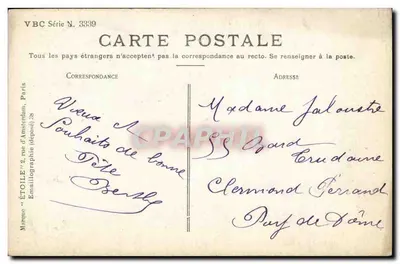 VBC Série N. 3339
CARTE POSTALE
Tous les pays étrangers n'acceptent pas la correspondance au recto. Se renseigner à la poste.
CORRESPONDANCE
ADRESSE
Vœux &
Souhaits de bonne
Fête
Berthe
Madame Jaloustre
55 Bgard
Trudaine
Clermond Ferrand
Puy de Dôme
Marque "ÉTOILE" 2, rue d'Amsterdam, Paris
Emaillographie (déposé) 78